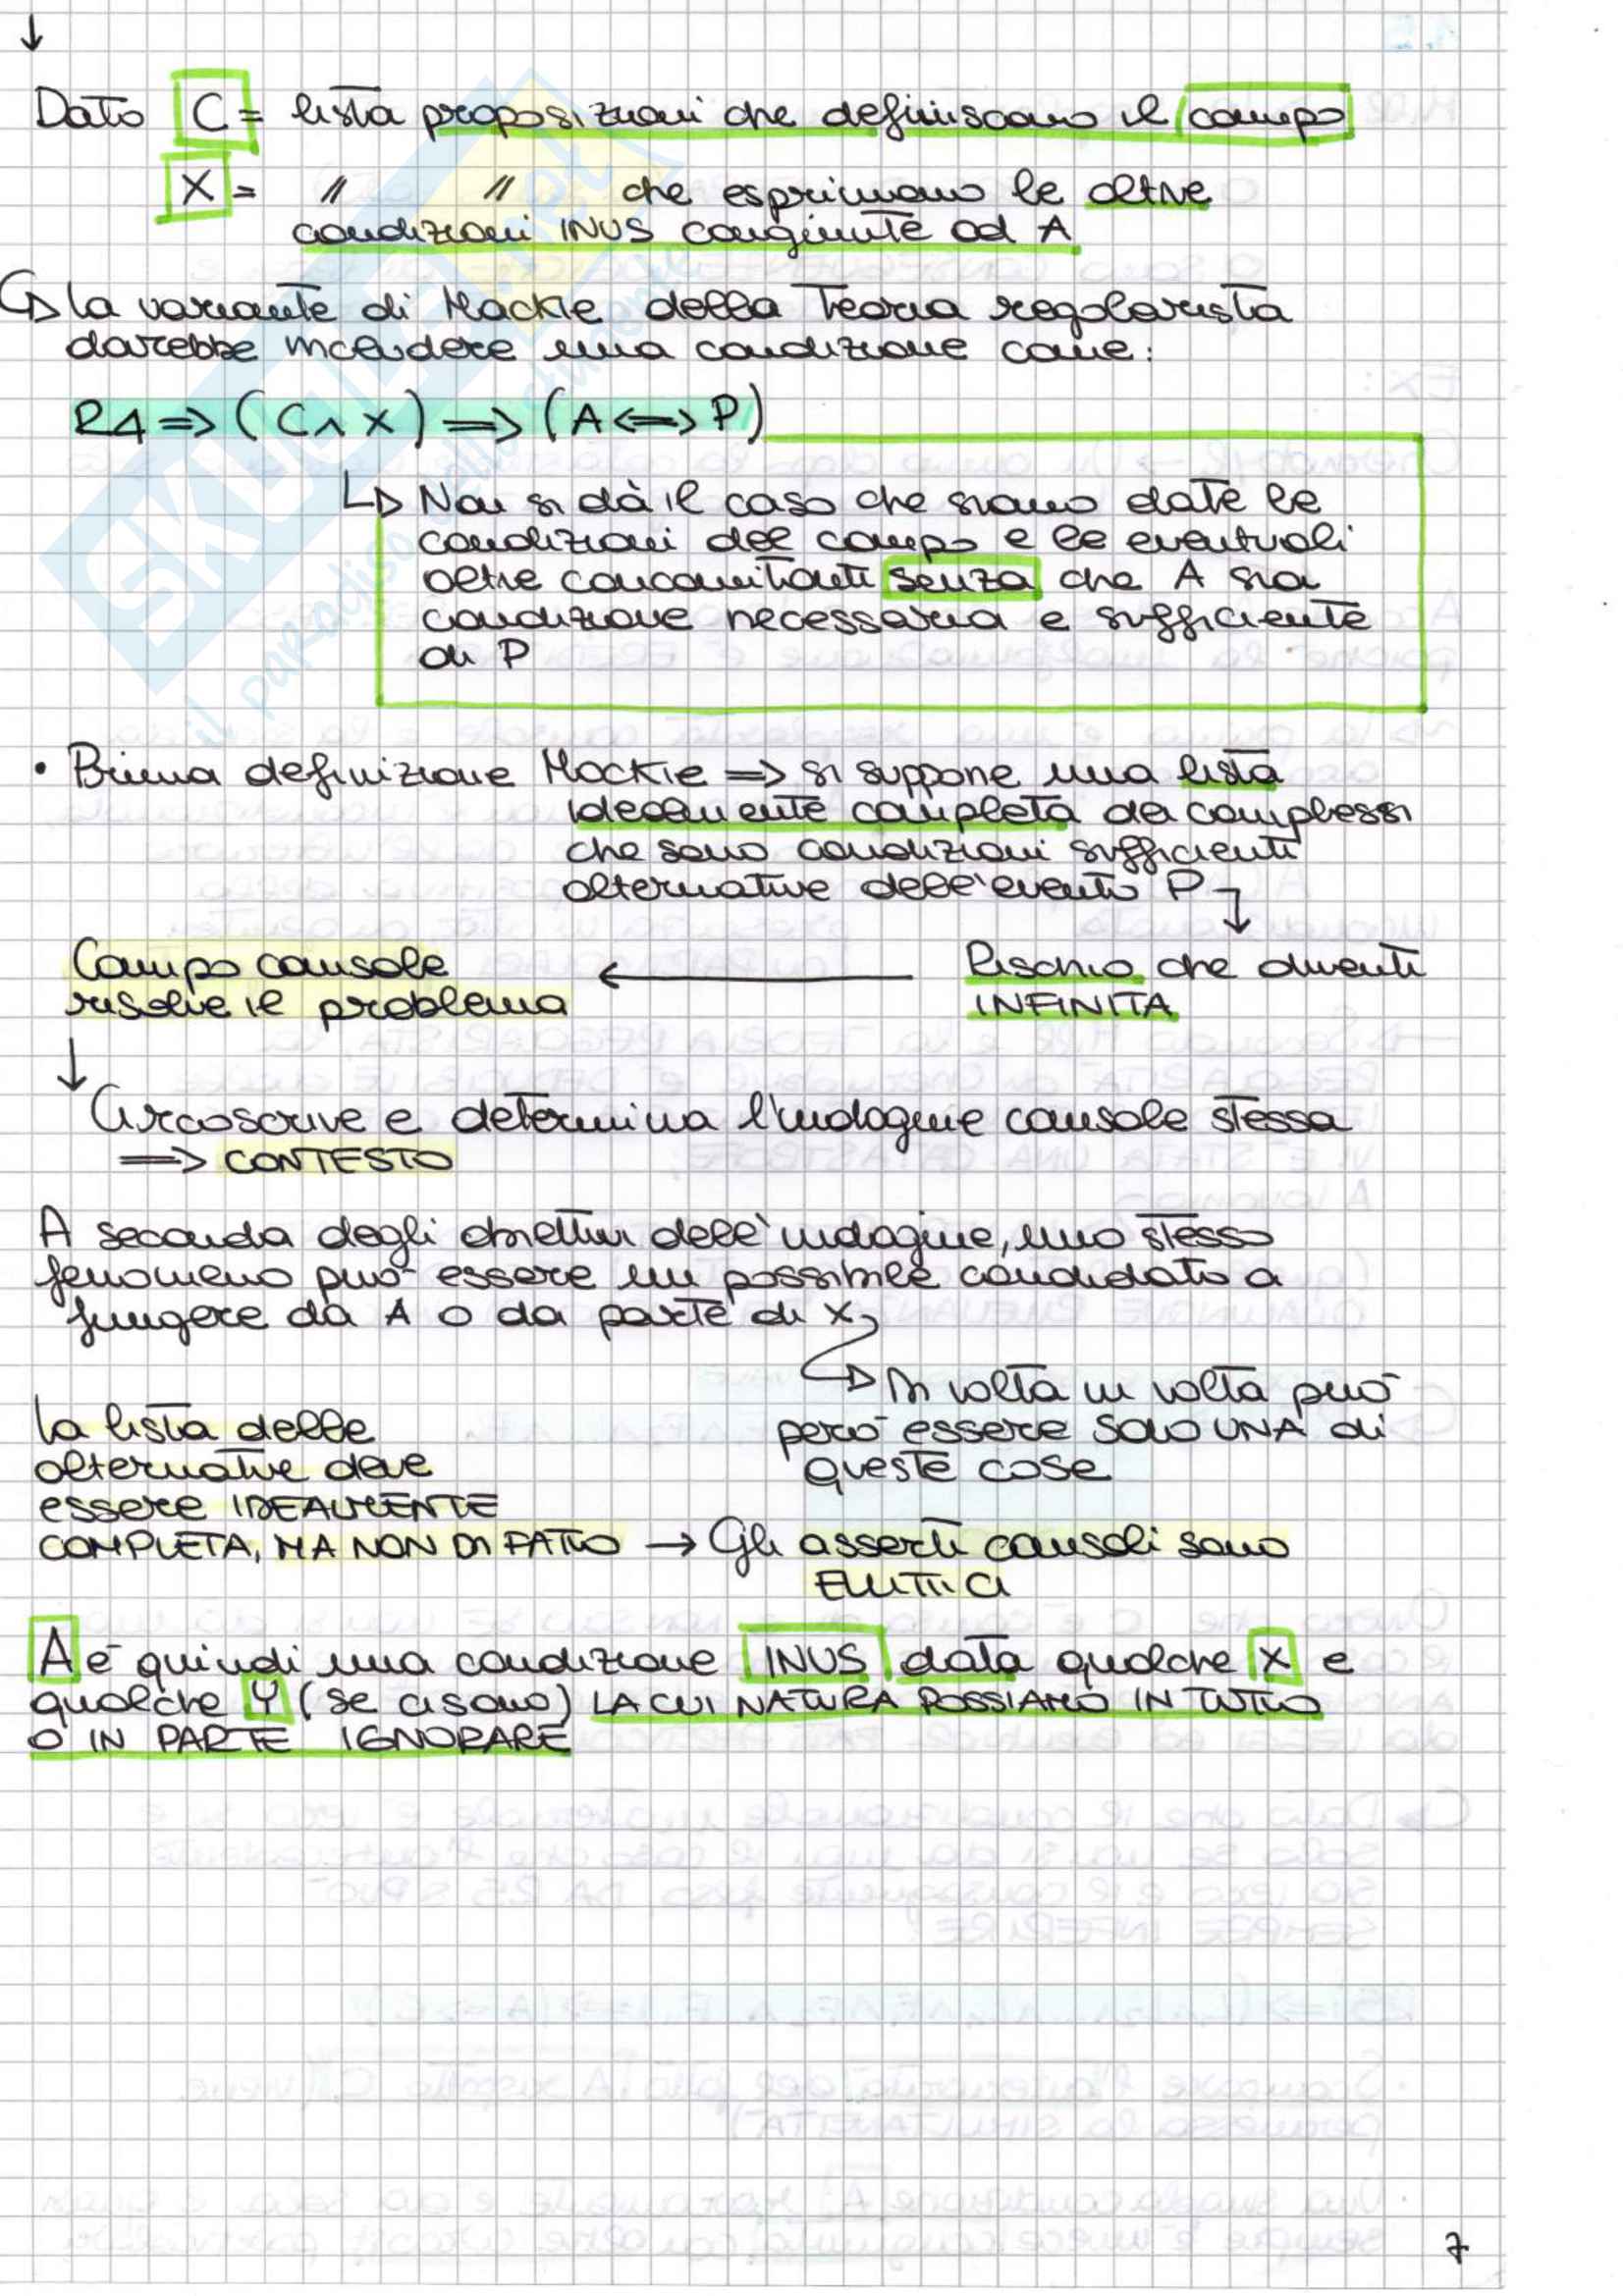 ↓
Dato C = lista proposizioni che definiscono il campo
X = " " che esprimono le altre
condizioni INUS congiunte ad A
↳ La variante di Mackie della Teoria regolarista
darebbe incendere una condizione come:
R4 => (C ∧ X) => (A <=> P)
↳ Non si dà il caso che siano date le
condizioni del campo e le eventuali
altre concomitanti senza che A sia
condizione necessaria e sufficiente
di P
• Prima definizione Mackie => si suppone una lista
idealmente completa dei complessi
che sono condizioni sufficienti
alternative dell'evento P ↓
Campo causale ← Rischio che diventi
risolve il problema INFINITA
↓
Circoscrive e determina l'indagine causale stessa
=> CONTESTO
A seconda degli obiettivi dell'indagine, uno stesso
fenomeno può essere un possibile candidato a
fungere da A o da parte di X
↳ Di volta in volta può
però essere SOLO UNA di
queste cose
La lista delle
alternative deve
essere IDEALMENTE
COMPLETA, MA NON DI FATTO → Gli asserti causali sono
ELLITTICI
A è quindi una condizione INUS data qualche X e
qualche Y (se ci sono) LA CUI NATURA POSSIAMO IN TUTTO
O IN PARTE IGNORARE
7
SKUOLA.net
il paradiso dello studente